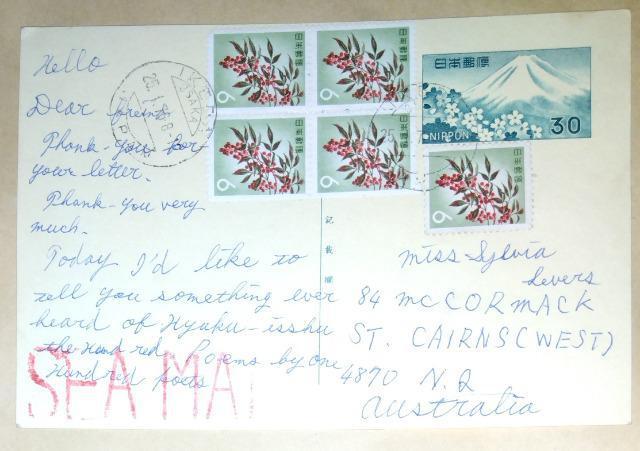 Hello
Dear freind
Thank-you for
your letter.
Thank-you very
much.
Today I'd like to
tell you something ever
heard of Hyaku-isshu
the Hundred Poems by one
Hundred poets
SEA MAI
日本郵便
9
日本郵便
9
日本郵便
9
日本郵便
9
日本郵便
NIPPON
30
日本郵便
9
記載欄
Miss Sylvia
Levers
84 MC CORMACK
ST. CAIRNS (WEST)
4870 N.Q
Australia